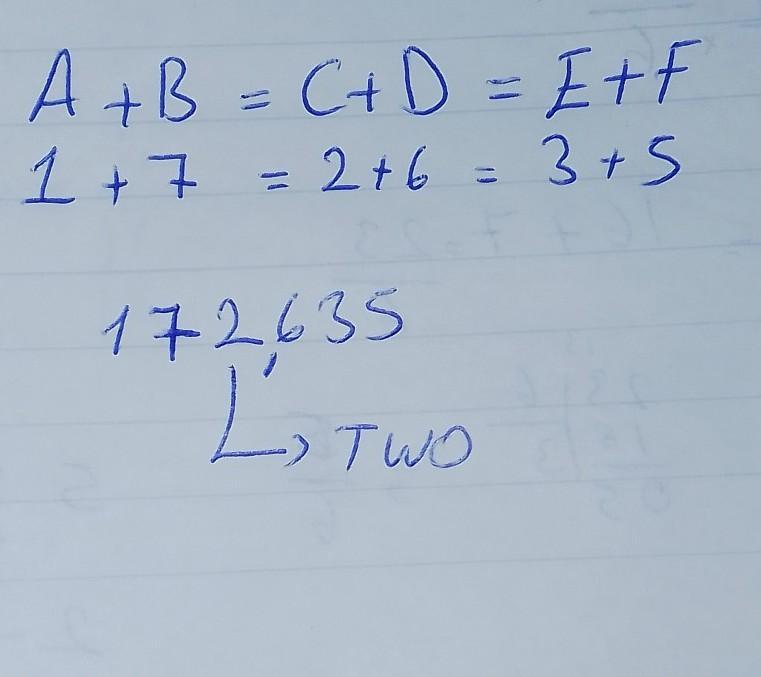 A + B = C + D = E + F
1 + 7 = 2 + 6 = 3 + 5
172,635
TWO